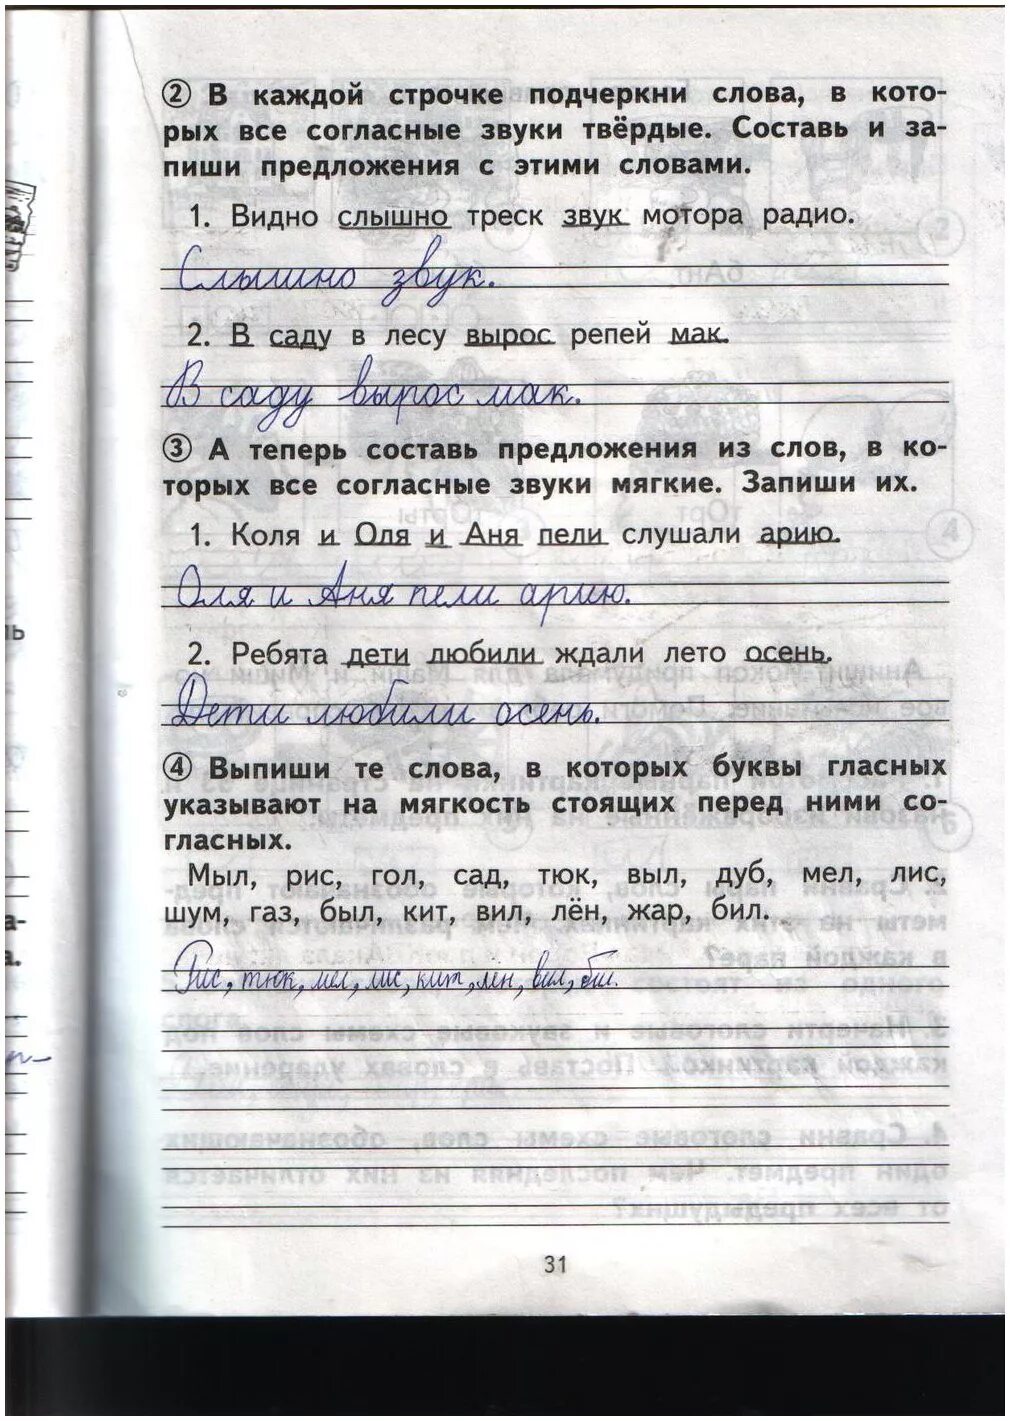 ② В каждой строчке подчеркни слова, в кото-
рых все согласные звуки твёрдые. Составь и за-
пиши предложения с этими словами.
1. Видно слышно треск звук мотора радио.
Слышно звук.
2. В саду в лесу вырос репей мак.
В саду вырос мак.
③ А теперь составь предложения из слов, в ко-
торых все согласные звуки мягкие. Запиши их.
1. Коля и Оля и Аня пели слушали арию.
Оля и Аня пели арию.
2. Ребята дети любили ждали лето осень.
Дети любили осень.
④ Выпиши те слова, в которых буквы гласных
указывают на мягкость стоящих перед ними со-
гласных.
Мыл, рис, гол, сад, тюк, выл, дуб, мел, лис,
шум, газ, был, кит, вил, лён, жар, бил.
Рис, тюк, мел, лис, кит, лен, вил, бил.
31